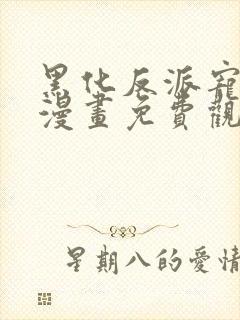 黑化反派寵
漫畫免費觀
星期八的愛情